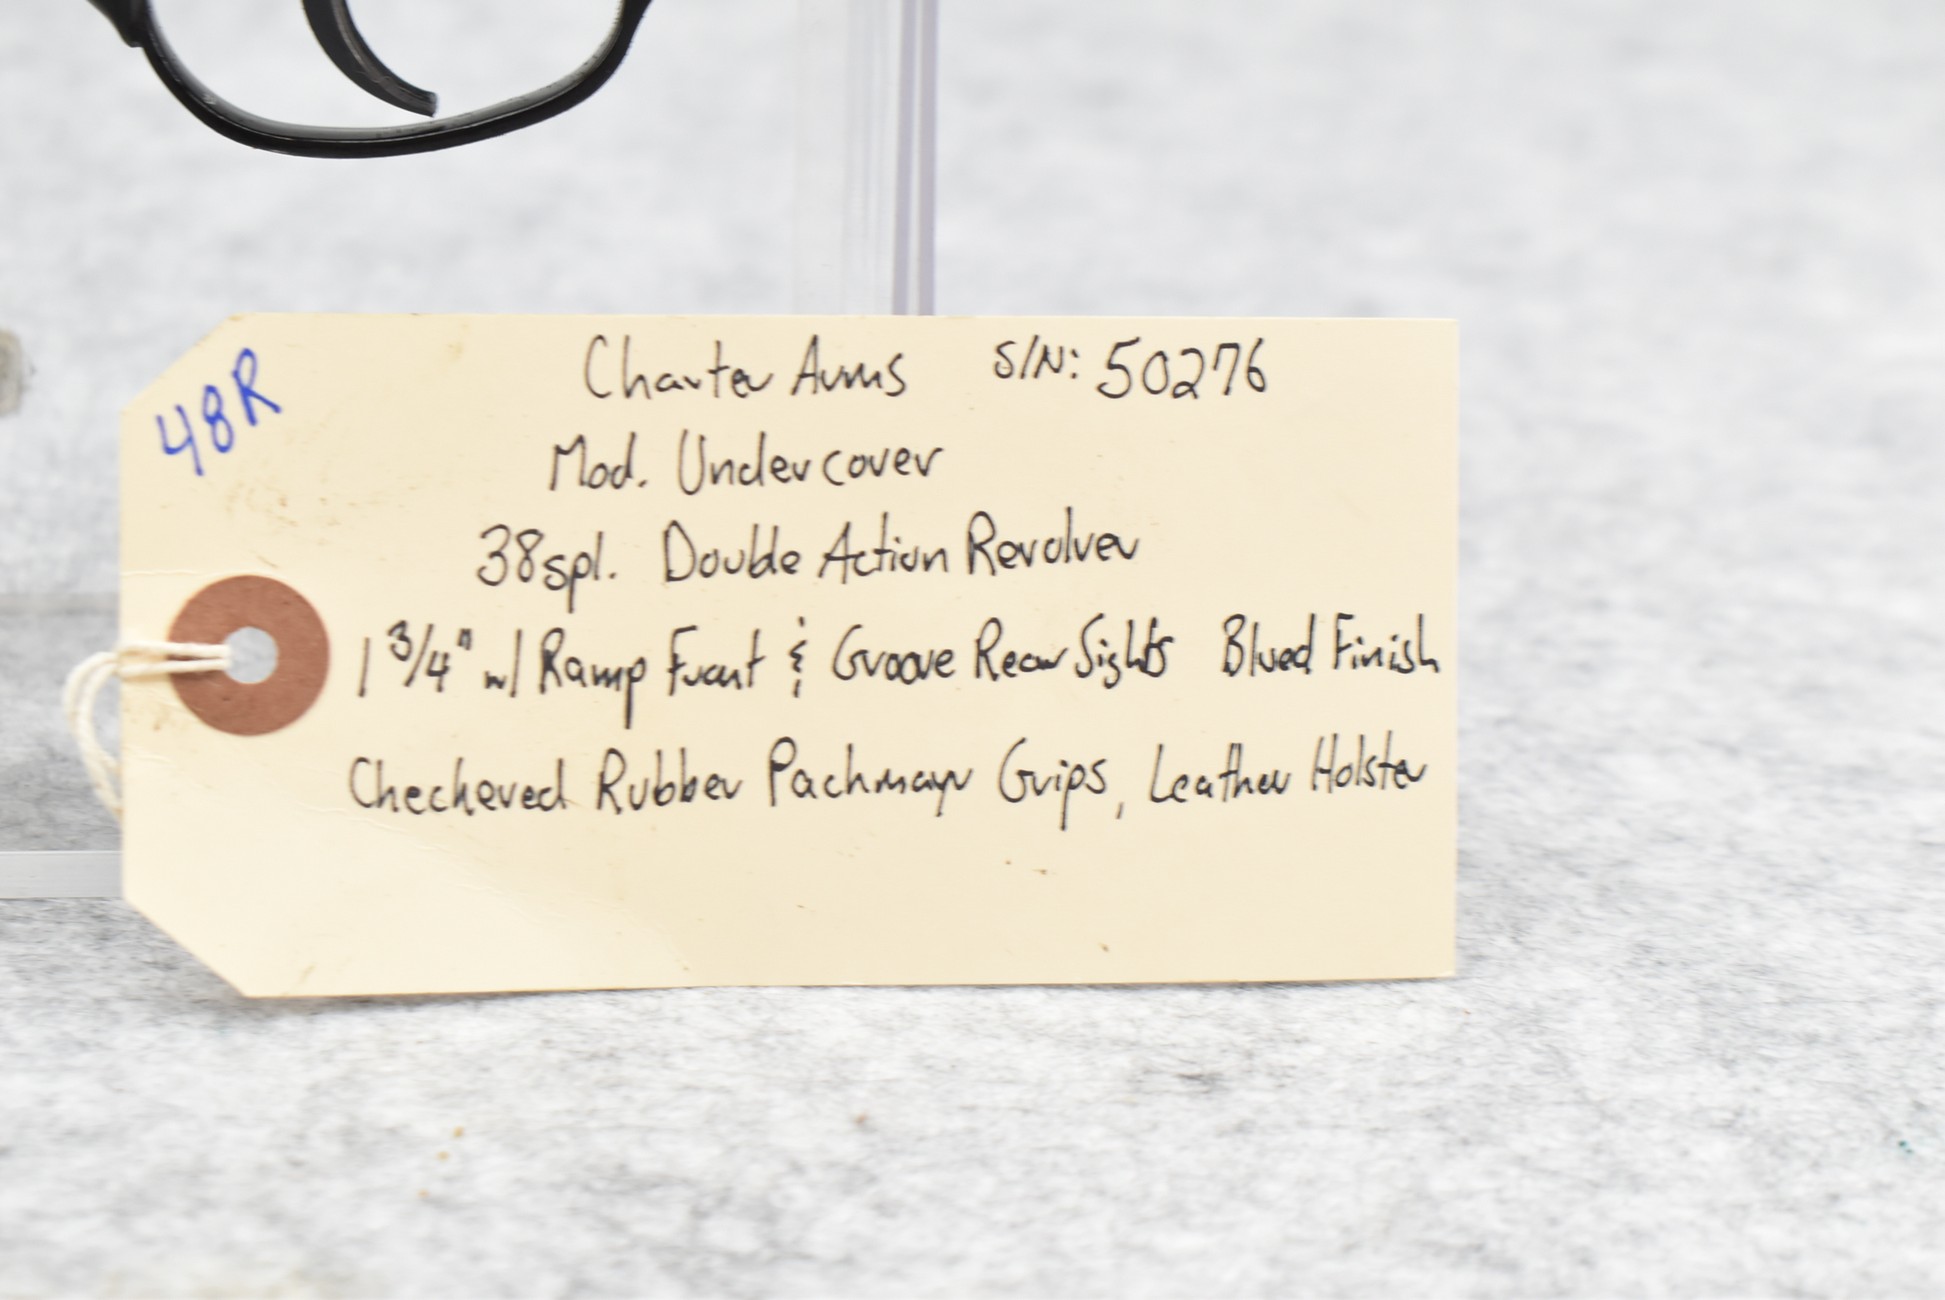 48R
Charter Arms S/N: 50276
Mod. Undercover
38spl. Double Action Revolver
1 3/4" w/ Ramp Front & Groove Rear Sights Blued Finish
Checkered Rubber Pachmayr Grips, Leather Holster